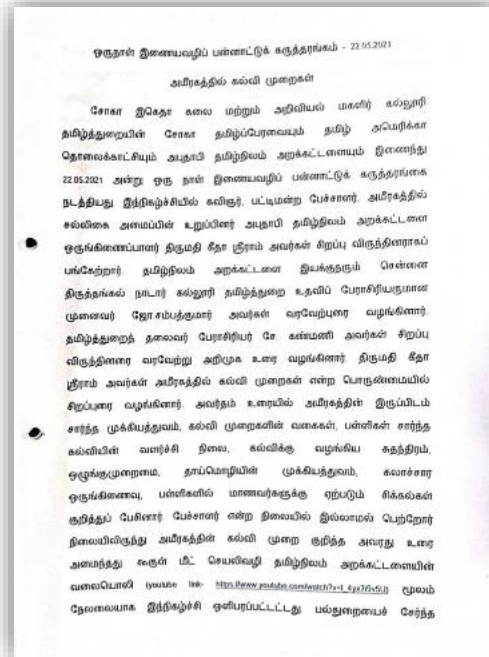 ஒருநாள் இணையவழிப் பன்னாட்டுக் கருத்தரங்கம் - 22.05.2021
அமீரகத்தில் கல்வி முறைகள்
சோகா இகெதா கலை மற்றும் அறிவியல் மகளிர் கல்லூரி
தமிழ்த்துறையின் சோகா தமிழ்ப்பேரவையும் தமிழ் அமெரிக்கா
தொலைக்காட்சியும் அபுதாபி தமிழ்நிலம் அறக்கட்டளையும் இணைந்து
22.05.2021 அன்று ஒரு நாள் இணையவழிப் பன்னாட்டுக் கருத்தரங்கை
நடத்தியது இந்நிகழ்ச்சியில் கவிஞர், பட்டிமன்ற பேச்சாளர், அமீரகத்தில்
சல்லிகை அமைப்பின் உறுப்பினர் அபுதாபி தமிழ்நிலம் அறக்கட்டளை
ஒருங்கிணைப்பாளர் திருமதி கீதா ஸ்ரீராம் அவர்கள் சிறப்பு விருந்தினராகப்
பங்கேற்றார். தமிழ்நிலம் அறக்கட்டளை இயக்குநரும் சென்னை
திருத்தங்கல் நாடார் கல்லூரி தமிழ்த்துறை உதவிப் பேராசிரியருமான
முனைவர் ஜோ.சம்பத்குமார் அவர்கள் வரவேற்புரை வழங்கினார்.
தமிழ்த்துறைத் தலைவர் பேராசிரியர் சே. கண்மணி அவர்கள் சிறப்பு
விருந்தினரை வரவேற்று அறிமுக உரை வழங்கினார். திருமதி கீதா
ஸ்ரீராம் அவர்கள் அமீரகத்தில் கல்வி முறைகள் என்ற பொருண்மையில்
சிறப்புரை வழங்கினார். அவர்தம் உரையில் அமீரகத்தின் இருப்பிடம்
சார்ந்த முக்கியத்துவம், கல்வி முறைகளின் வகைகள், பள்ளிகள் சார்ந்த
கல்வியின் வளர்ச்சி நிலை, கல்விக்கு வழங்கிய சுதந்திரம்,
ஒழுங்குமுறைமை, தாய்மொழியின் முக்கியத்துவம், கலாச்சார
ஒருங்கிணைவு, பள்ளிகளில் மாணவர்களுக்கு ஏற்படும் சிக்கல்கள்
குறித்துப் பேசினார். பேச்சாளர் என்ற நிலையில் இல்லாமல் பெற்றோர்
நிலையிலிருந்து அமீரகத்தின் கல்வி முறை குறித்த அவரது உரை
அமைந்தது. கூகுள் மீட் செயலிவழி தமிழ்நிலம் அறக்கட்டளையின்
வலையொலி (youtube link- மூலம்
நேரலையாக இந்நிகழ்ச்சி ஒளிபரப்பட்டது. பல்துறையைச் சேர்ந்த